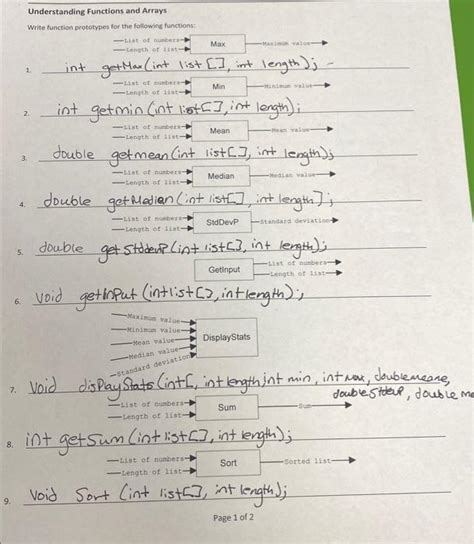 Understanding Functions and Arrays
Write function prototypes for the following functions:
List of numbers
Length of list
Max
Maximum value
1. int getMax(int list[], int length);
List of numbers
Length of list
Min
Minimum value
2. int getmin(int list[], int length);
List of numbers
Length of list
Mean
Mean value
3. double getmean(int list[], int length);
List of numbers
Length of list
Median
Median value
4. double getMedian(int list[], int length];
List of numbers
Length of list
StdDevP
Standard deviation
5. double getStddevP(int list[], int length);
GetInput
List of numbers
Length of list
6. void getInPut(int list[], int length);
Maximum value
Minimum value
Mean value
Median value
Standard deviation
DisplayStats
7. Void disPlayStats(int[, int length, int min, int max, double meane,
double StdevP, double me
List of numbers
Length of list
Sum
Sum
8. int getsum(int list[], int length);
List of numbers
Length of list
Sort
Sorted list
9. Void Sort (int list[], int length);
Page 1 of 2